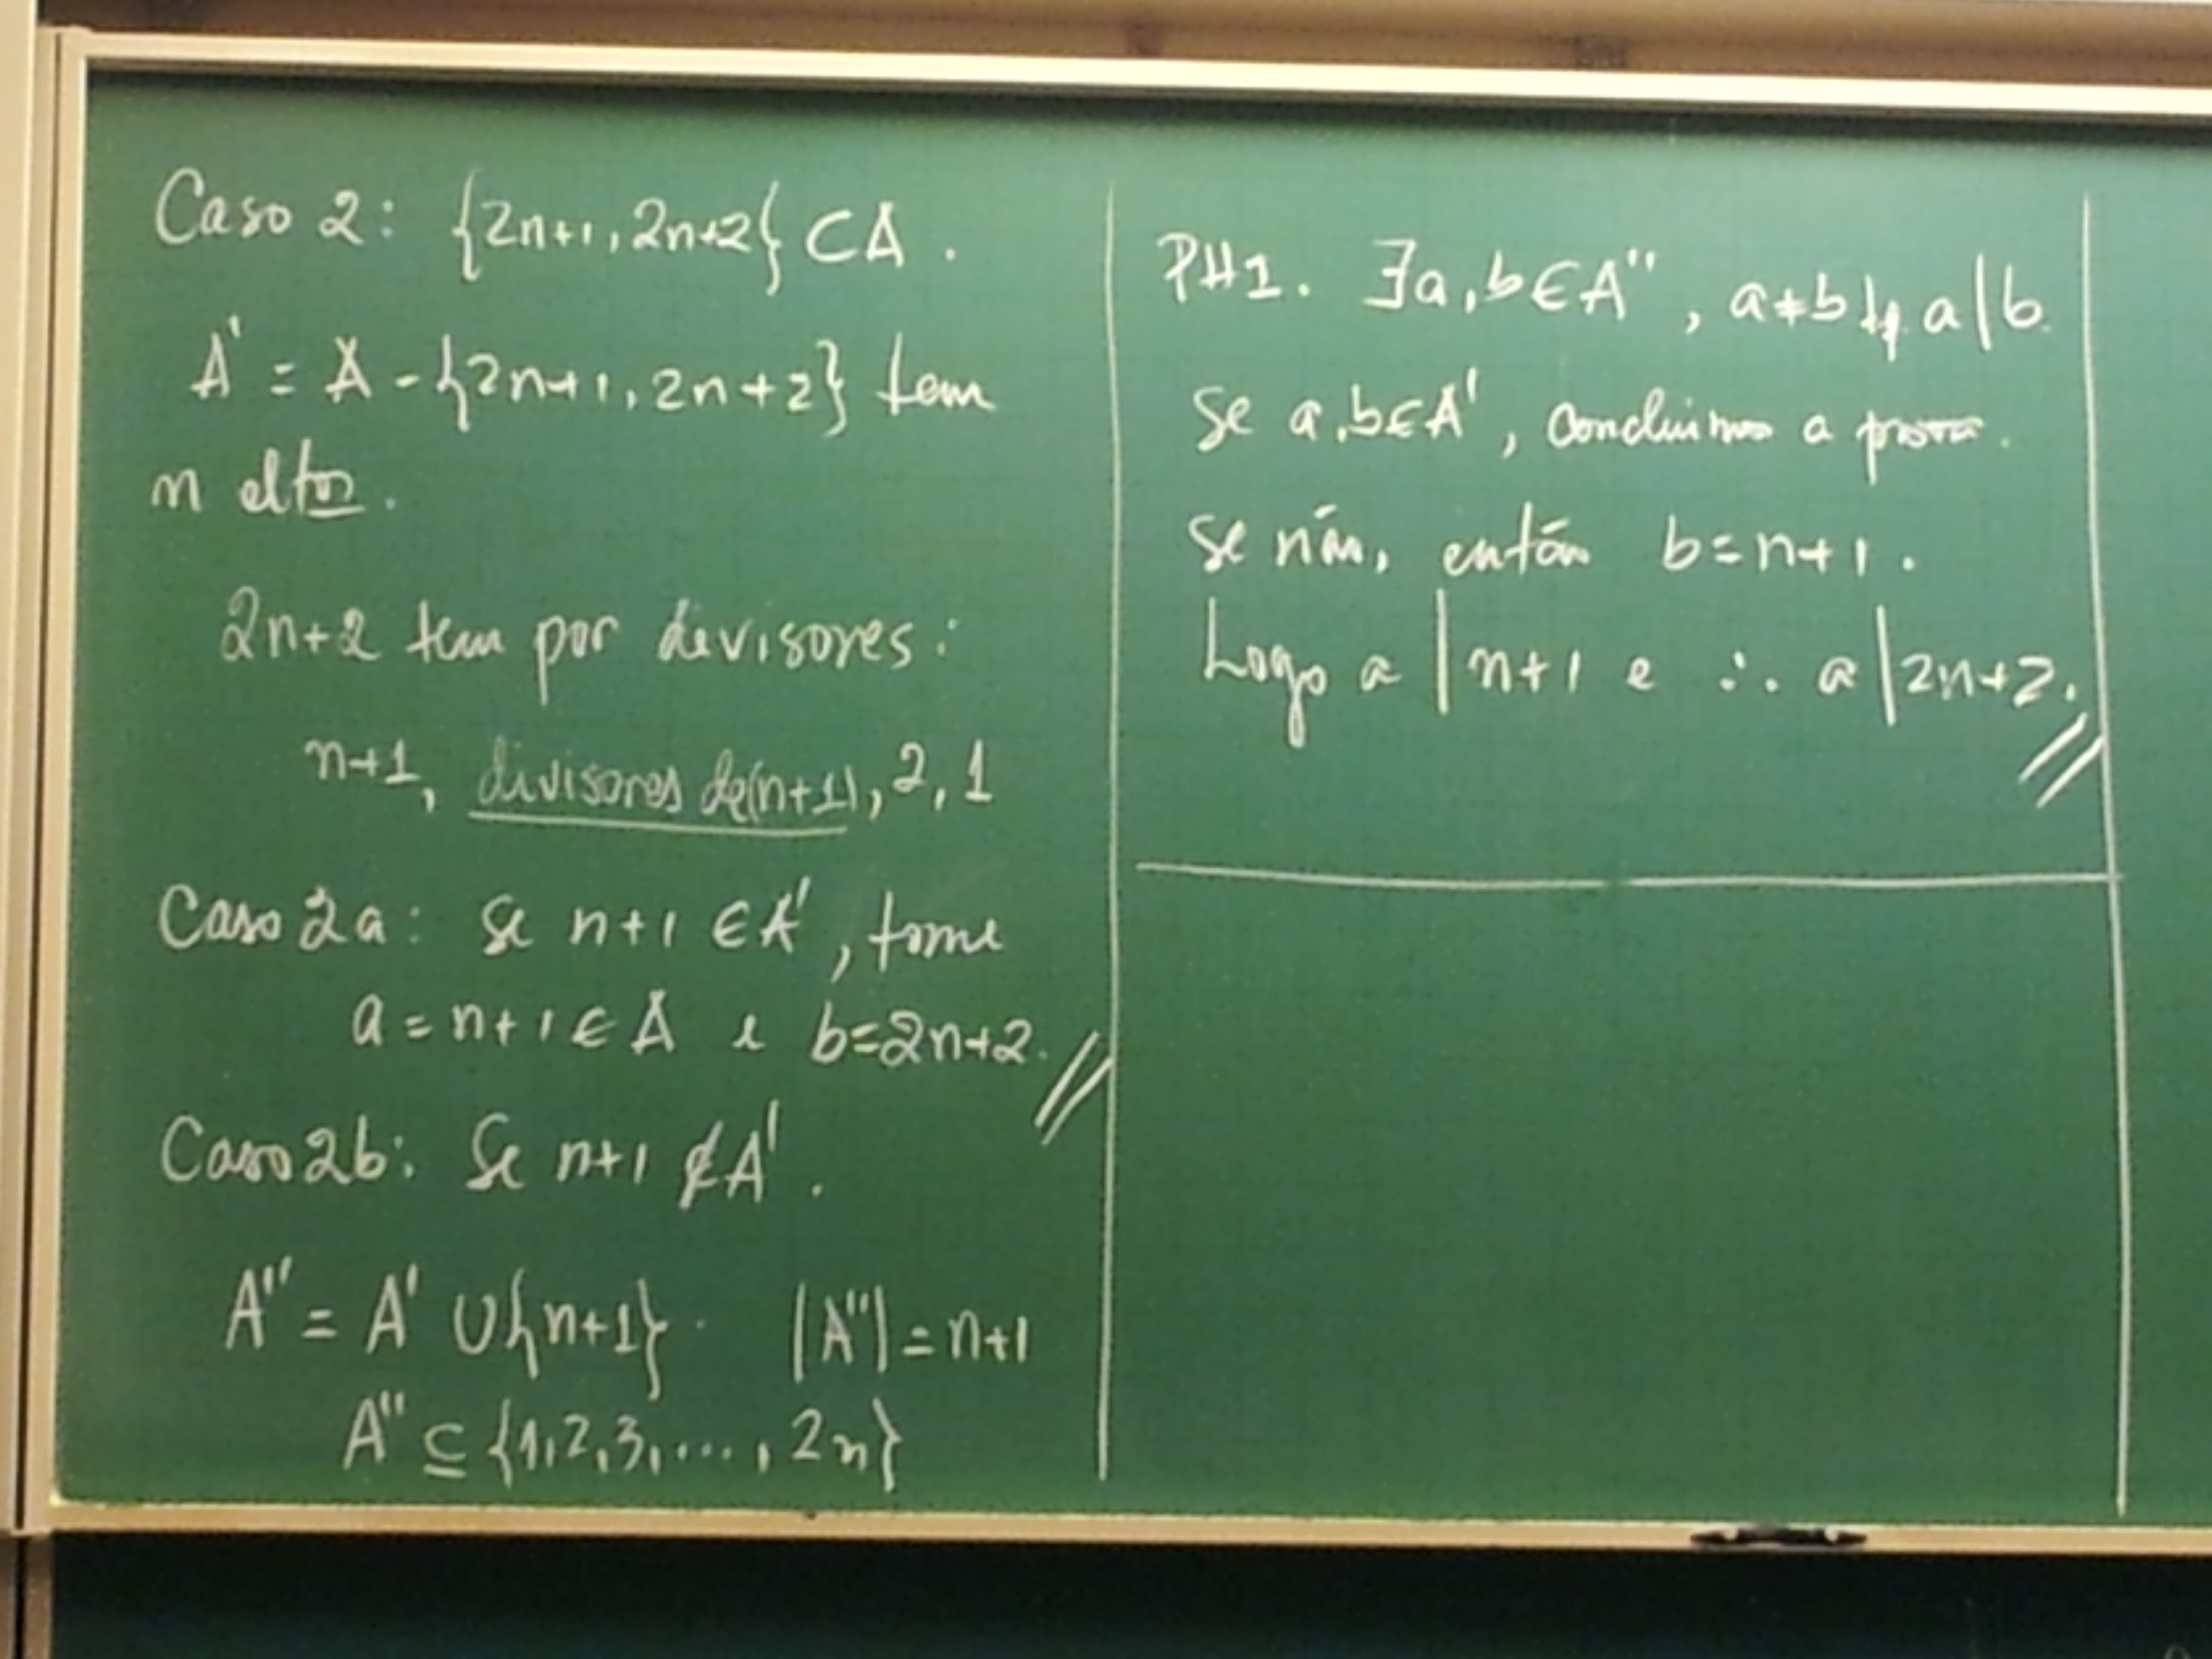 Caso 2: {2n+1, 2n+2} ⊂ A.
A' = A - {2n+1, 2n+2} tem
n eltos.
2n+2 tem por divisores:
n+1, divisores de (n+1), 2, 1
Caso 2a: Se n+1 ∈ A', tome
a = n+1 ∈ A e b=2n+2. //
Caso 2b: Se n+1 ∉ A'.
A'' = A' ∪ {n+1}. |A''| = n+1
A'' ⊆ {1,2,3,..., 2n}
PHI. ∃a,b ∈ A'', a≠b tq a|b.
Se a,b ∈ A', concluimos a prova.
Se não, então b=n+1.
Logo a | n+1 e ∴ a | 2n+2. //